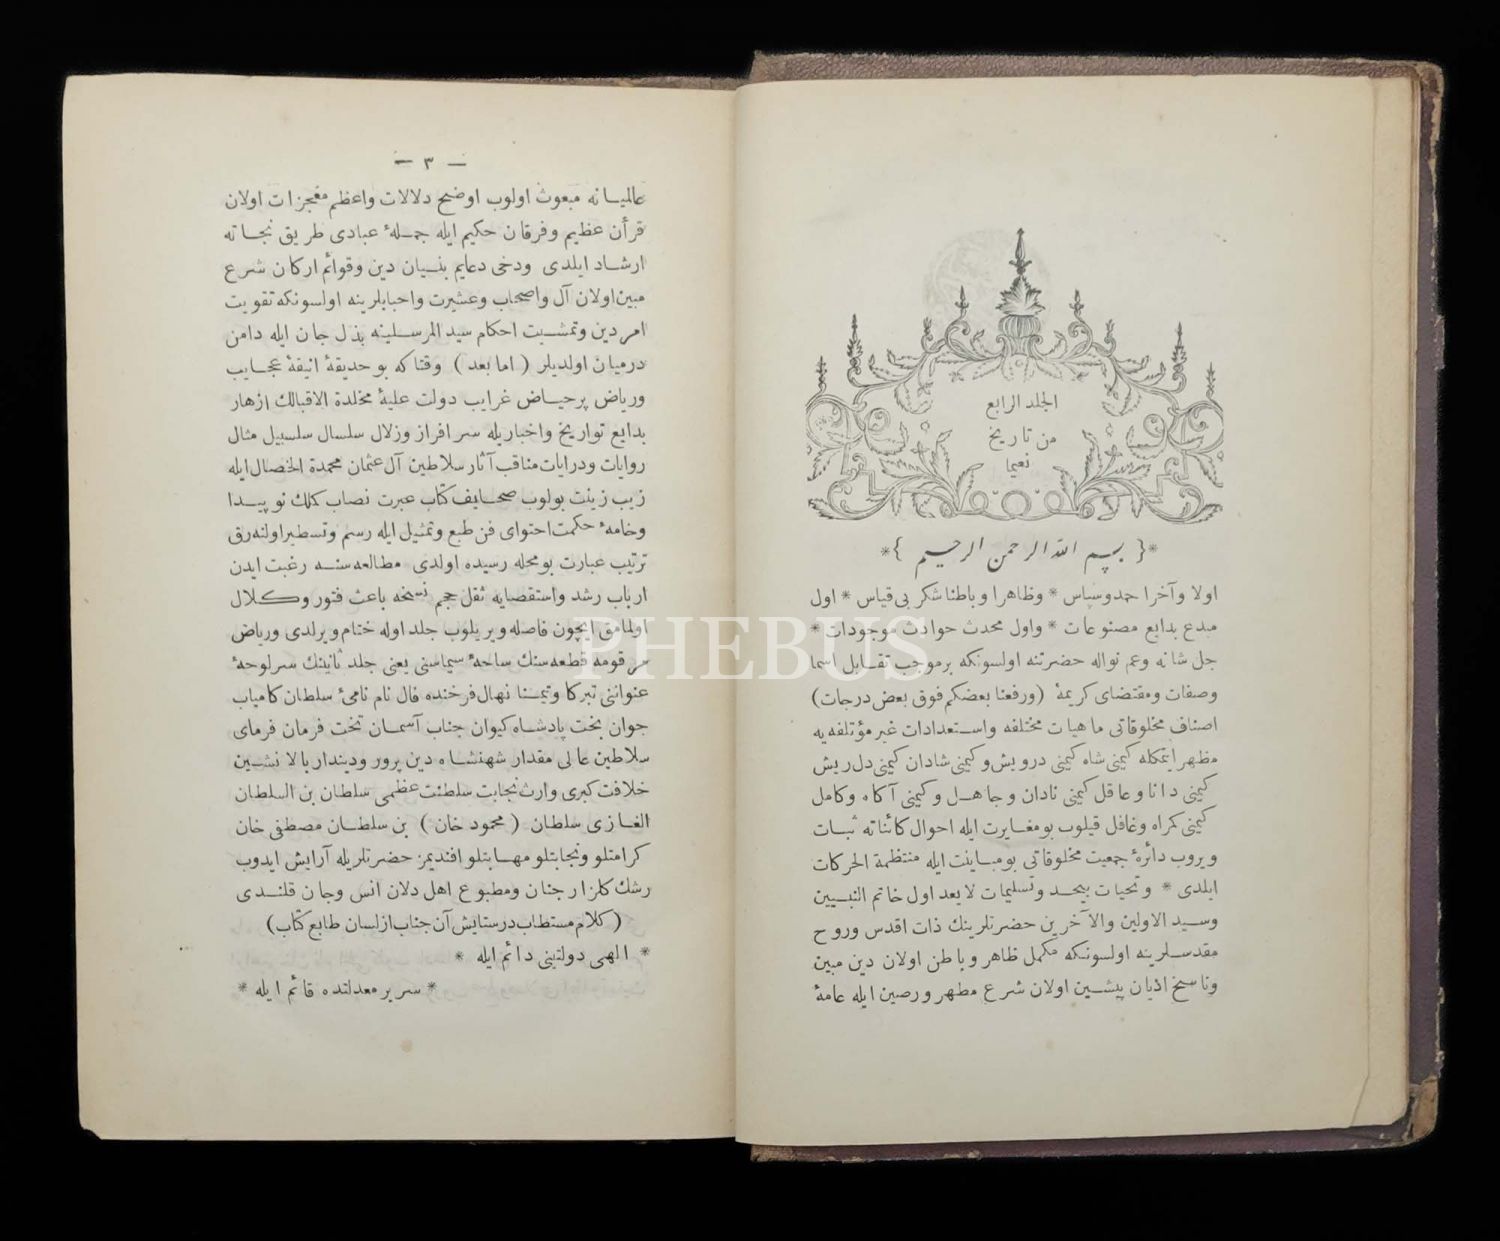 الجلد الرابع
من تاريخ
نعيما
*{ بسم الله الرحمن الرحيم }*
اولا وآخرا حمد وسپاس * وظاهرا وباطنا شكر بى قياس * اول
مبدع بدايع مصنوعات * واول محدث حوادث موجودات *
جل شانه وعم نواله حضرتنه اولسونكه بر موجب تقابل اسما
وصفات ومقتضاى كريمۀ (ورفعنا بعضكم فوق بعض درجات)
اصناف مخلوقاتى ماهيات مختلفه واستعدادات غير مؤتلفه يه
مظهر ايتمكله كيمنى شاه كيمنى درويش وكيمنى شادان كيمنى دل ريش
كيمنى دانا وعاقل كيمنى نادان وجاهل وكيمنى آكاه وكامل
كيمنى كمراه وغافل قيلوب بو مغايرت ايله احوال كائناته ثبات
ويروب دائرۀ جمعيت مخلوقاتى بو مباينت ايله منتظمة الحركات
ايلدى * وتحيات بيحد وتسليمات لايعد اول خاتم النبيين
وسيد الاولين والآخرين حضرتلرينك ذات اقدس وروح
مقدسلرينه اولسونكه مكمل ظاهر وباطن اولان دين مبين
وناسخ اديان پيشين اولان شرع مطهر ورصين ايله عامۀ
— ٣ —
عالميانه مبعوث اولوب اوضح دلالات واعظم معجزات اولان
قرأن عظيم وفرقان حكيم ايله جملۀ عبادى طريق نجاته
ارشاد ايلدى ودخى دعايم بنيان دين وقوائم اركان شرع
مبين اولان آل واصحاب وعشيرت واحبابلرينه اولسونكه تقويت
امر دين وتمشيت احكام سيد المرسلينه بذل جان ايله دامن
درميان اولديلر ( اما بعد ) وقتاكه بو حديقۀ انيقۀ عجايب
ورياض پرحياض غرايب دولت عليۀ مخلدة الاقبالك ازهار
بدايع تواريخ واخباريله سرافراز وزلال سلسال سلسبيل مثال
روايات ودرايات مناقب آثار سلاطين آل عثمان محمدة الخصال ايله
زيب زينت بولوب صحايف كتاب عبرت نصاب كلك نو پيدا
وخامۀ حكمت احتواى فن طبع وتمثيل ايله رسم وتسطير اولنه رق
ترتيب عبارت بو محله رسيده اولدى مطالعه سنه رغبت ايدن
ارباب رشد واستقصايه ثقل حجم نسخه باعث فتور وكلال
اولمامق ايچون فاصله ويريلوب جلد اوله ختام ويرلدى ورياض
مرقومه قطعه سنك ساحۀ سيماسنى يعنى جلد ثانينك سرلوحۀ
عنواننى تبركا وتيمنا نهال فرخنده فال نام نامئ سلطان كامياب
جوان بخت پادشاه كيوان جناب آسمان تخت فرمان فرماى
سلاطين عالى مقدار شهنشاه دين پرور وديندار بالا نشين
خلافت كبرى وارث نجابت سلطنت عظمى سلطان بن السلطان
الغازى سلطان ( محمود خان ) بن سلطان مصطفى خان
كرامتلو ونجابتلو مهابتلو افنديمز حضرتلريله آرايش ايدوب
رشك كلزار جنان ومطبوع اهل دلان انس وجان قلندى
(كلام مستطاب درستايش آن جناب از لسان طابع كتاب)
* الهى دولتينى دائم ايله *
* سرير معدلتده قائم ايله *
PHEBUS